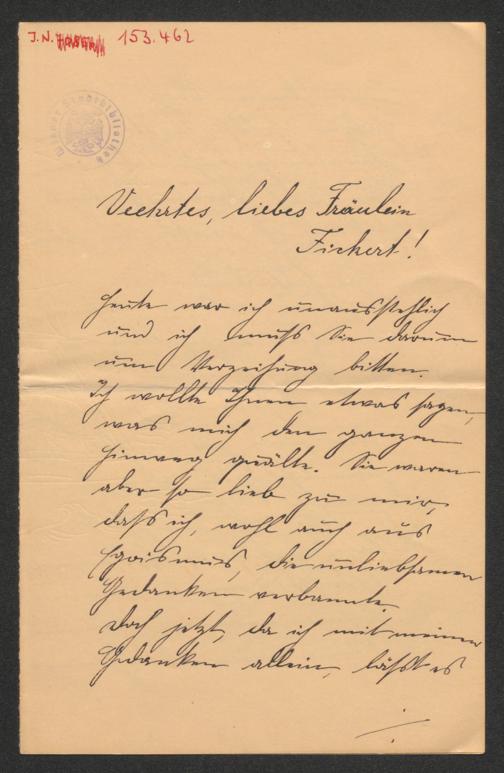 J.N. 153.462
Wiener Stadtbibliothek
Veehrtes, liebes Fräulein
Fickert!
Heute war ich unausstehlich
und ich muß Sie darum
um Verzeihung bitten.
Ich wollte Ihnen etwas sagen,
was mich den ganzen
Hinweg quälte. Sie waren
aber so lieb zu mir,
daß ich, wohl auch aus
Egoismus, die unliebsamen
Gedanken verbannte.
Doch jetzt, da ich mit meinen
Gedanken allein, läßt es